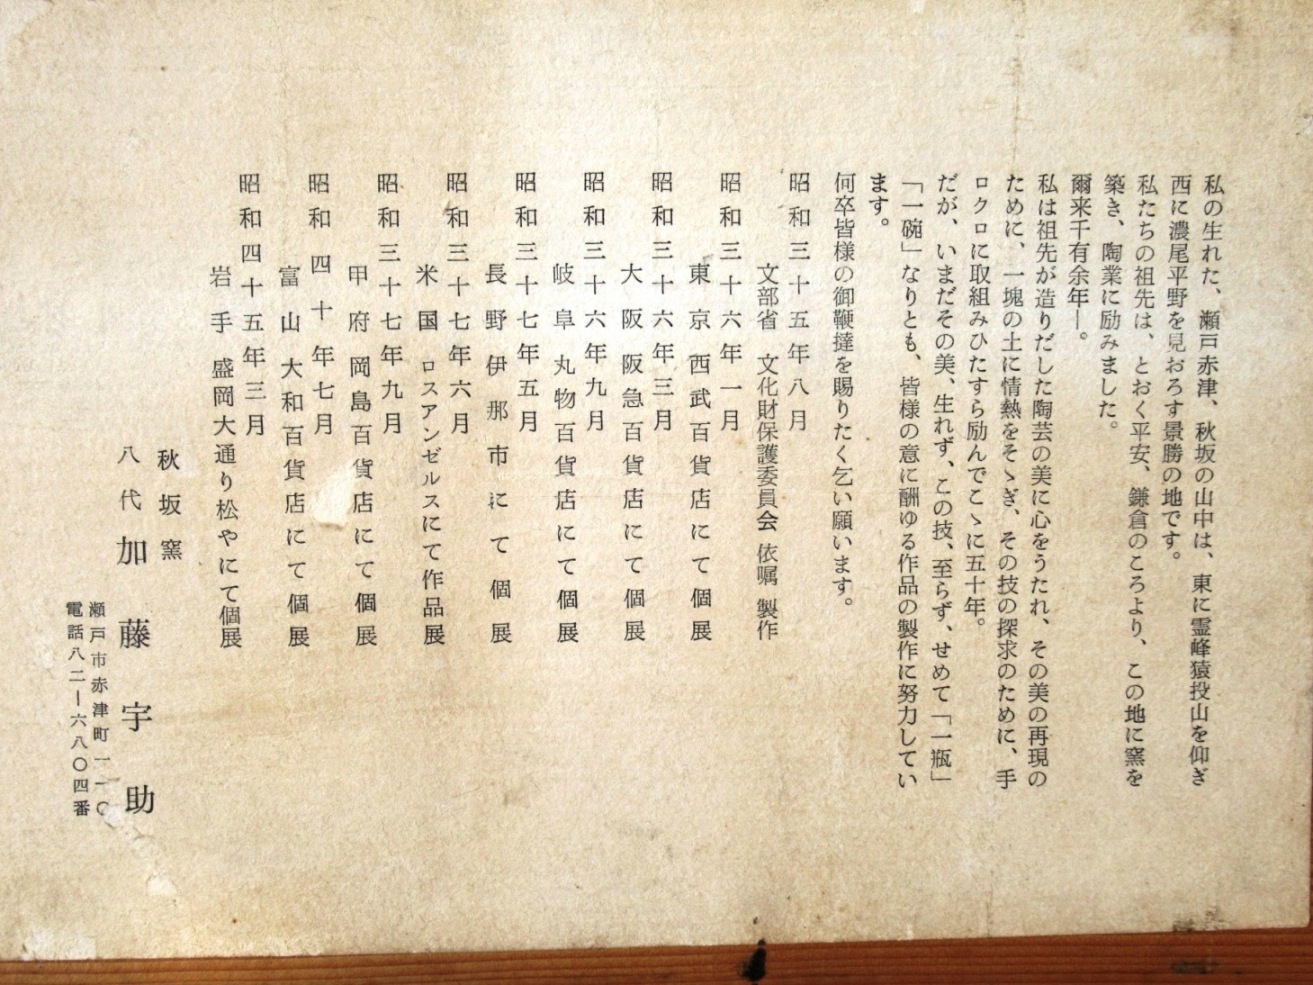 私の生れた、瀬戸赤津、秋坂の山中は、東に霊峰猿投山を仰ぎ
西に濃尾平野を見おろす景勝の地です。
私たちの祖先は、とおく平安、鎌倉のころより、この地に窯を
築き、陶業に励みました。
爾来千有余年―。
私は祖先が造りだした陶芸の美に心をうたれ、その美の再現の
ために、一塊の土に情熱をそゝぎ、その技の探求のために、手
ロクロに取組みひたすら励んでこゝに五十年。
だが、いまだその美、生れず、この技、至らず、せめて「一瓶」
「一碗」なりとも、皆様の意に酬ゆる作品の製作に努力してい
ます。
何卒皆様の御鞭撻を賜りたく乞い願います。
昭和三十五年八月
文部省 文化財保護委員会 依嘱 製作
昭和三十六年一月
東京 西武百貨店にて個展
昭和三十六年三月
大阪 阪急百貨店にて個展
昭和三十六年九月
岐阜 丸物百貨店にて個展
昭和三十七年五月
長野伊那市にて個展
昭和三十七年六月
米国 ロスアンゼルスにて作品展
昭和三十七年九月
甲府 岡島百貨店にて個展
昭和四十年七月
富山 大和百貨店にて個展
昭和四十五年三月
岩手 盛岡大通り松やにて個展
秋坂窯
八代 加藤宇助
瀬戸市赤津町一一〇
電話八二―六八〇四番